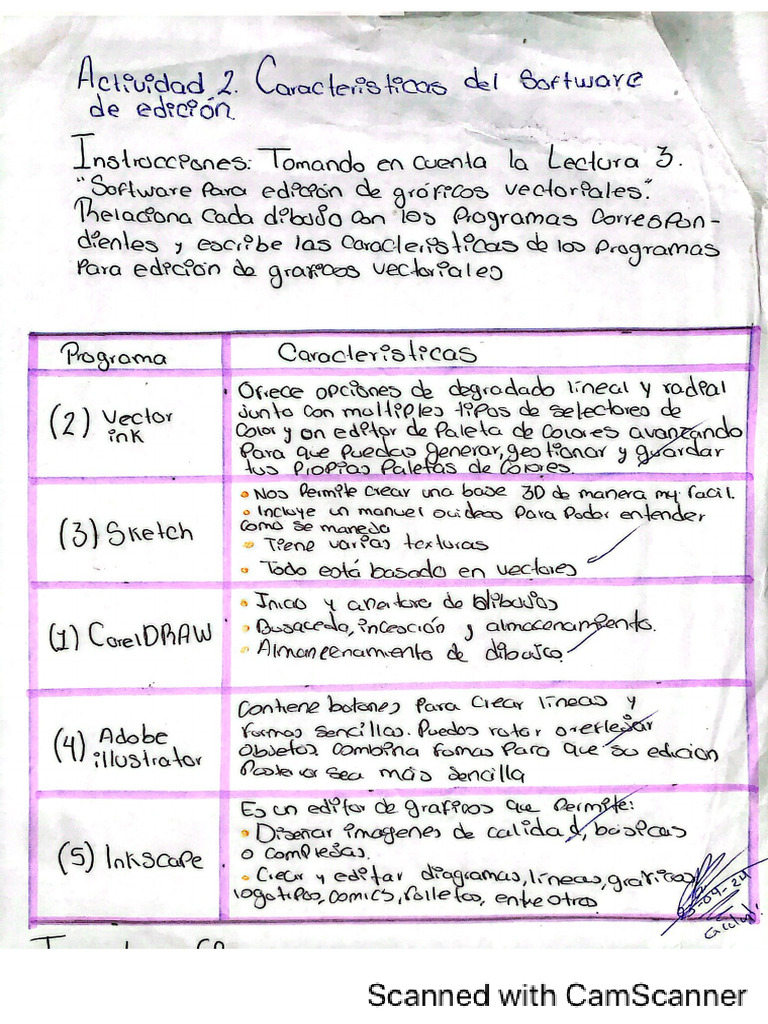 Actividad 2. Caracteristicas del Software
de edición.
Instrucciones: Tomando en cuenta la Lectura 3.
"Software Para edición de gráficos vectoriales".
Relaciona Cada dibujo con los Programas Correspon-
dientes y escribe las Caracteristicas de los programas
Para edición de graficos vectoriales
Programa
Caracteristicas
(2) Vector
ink
Ofrece opciones de degradado lineal y radial
Junto con multiples tipos de selectores de
Color y un editor de Paleta de Colores avanzando
Para que puedas generar, gestionar y guardar
tus Propias Paletas de Colores.
(3) Sketch
• Nos Permite crear una base 3D de manera my facil.
• Incluye un manuel ouideos Para Poder entender
como se maneja
• Tiene varias texturas
• Todo está basado en vectores
(1) CorelDRAW
• Inicio y de dibujos
• y almacenamiento.
• de dibujos.
(4) Adobe
illustrator
Contiene botones Para Crear lineas y
formas sencillas. Puedes rotar o reflejar
Objetos Combina formas Para que su edicion
Posterior sea más sencilla
(5) Inkscape
Es un editor de graficos que Permite:
• Diseñar imagenes de calidad, basicas
o complejas.
• Crear y editar diagramas, líneas, graficos,
logotipos, comics, folletos, entre otros.
Scanned with CamScanner